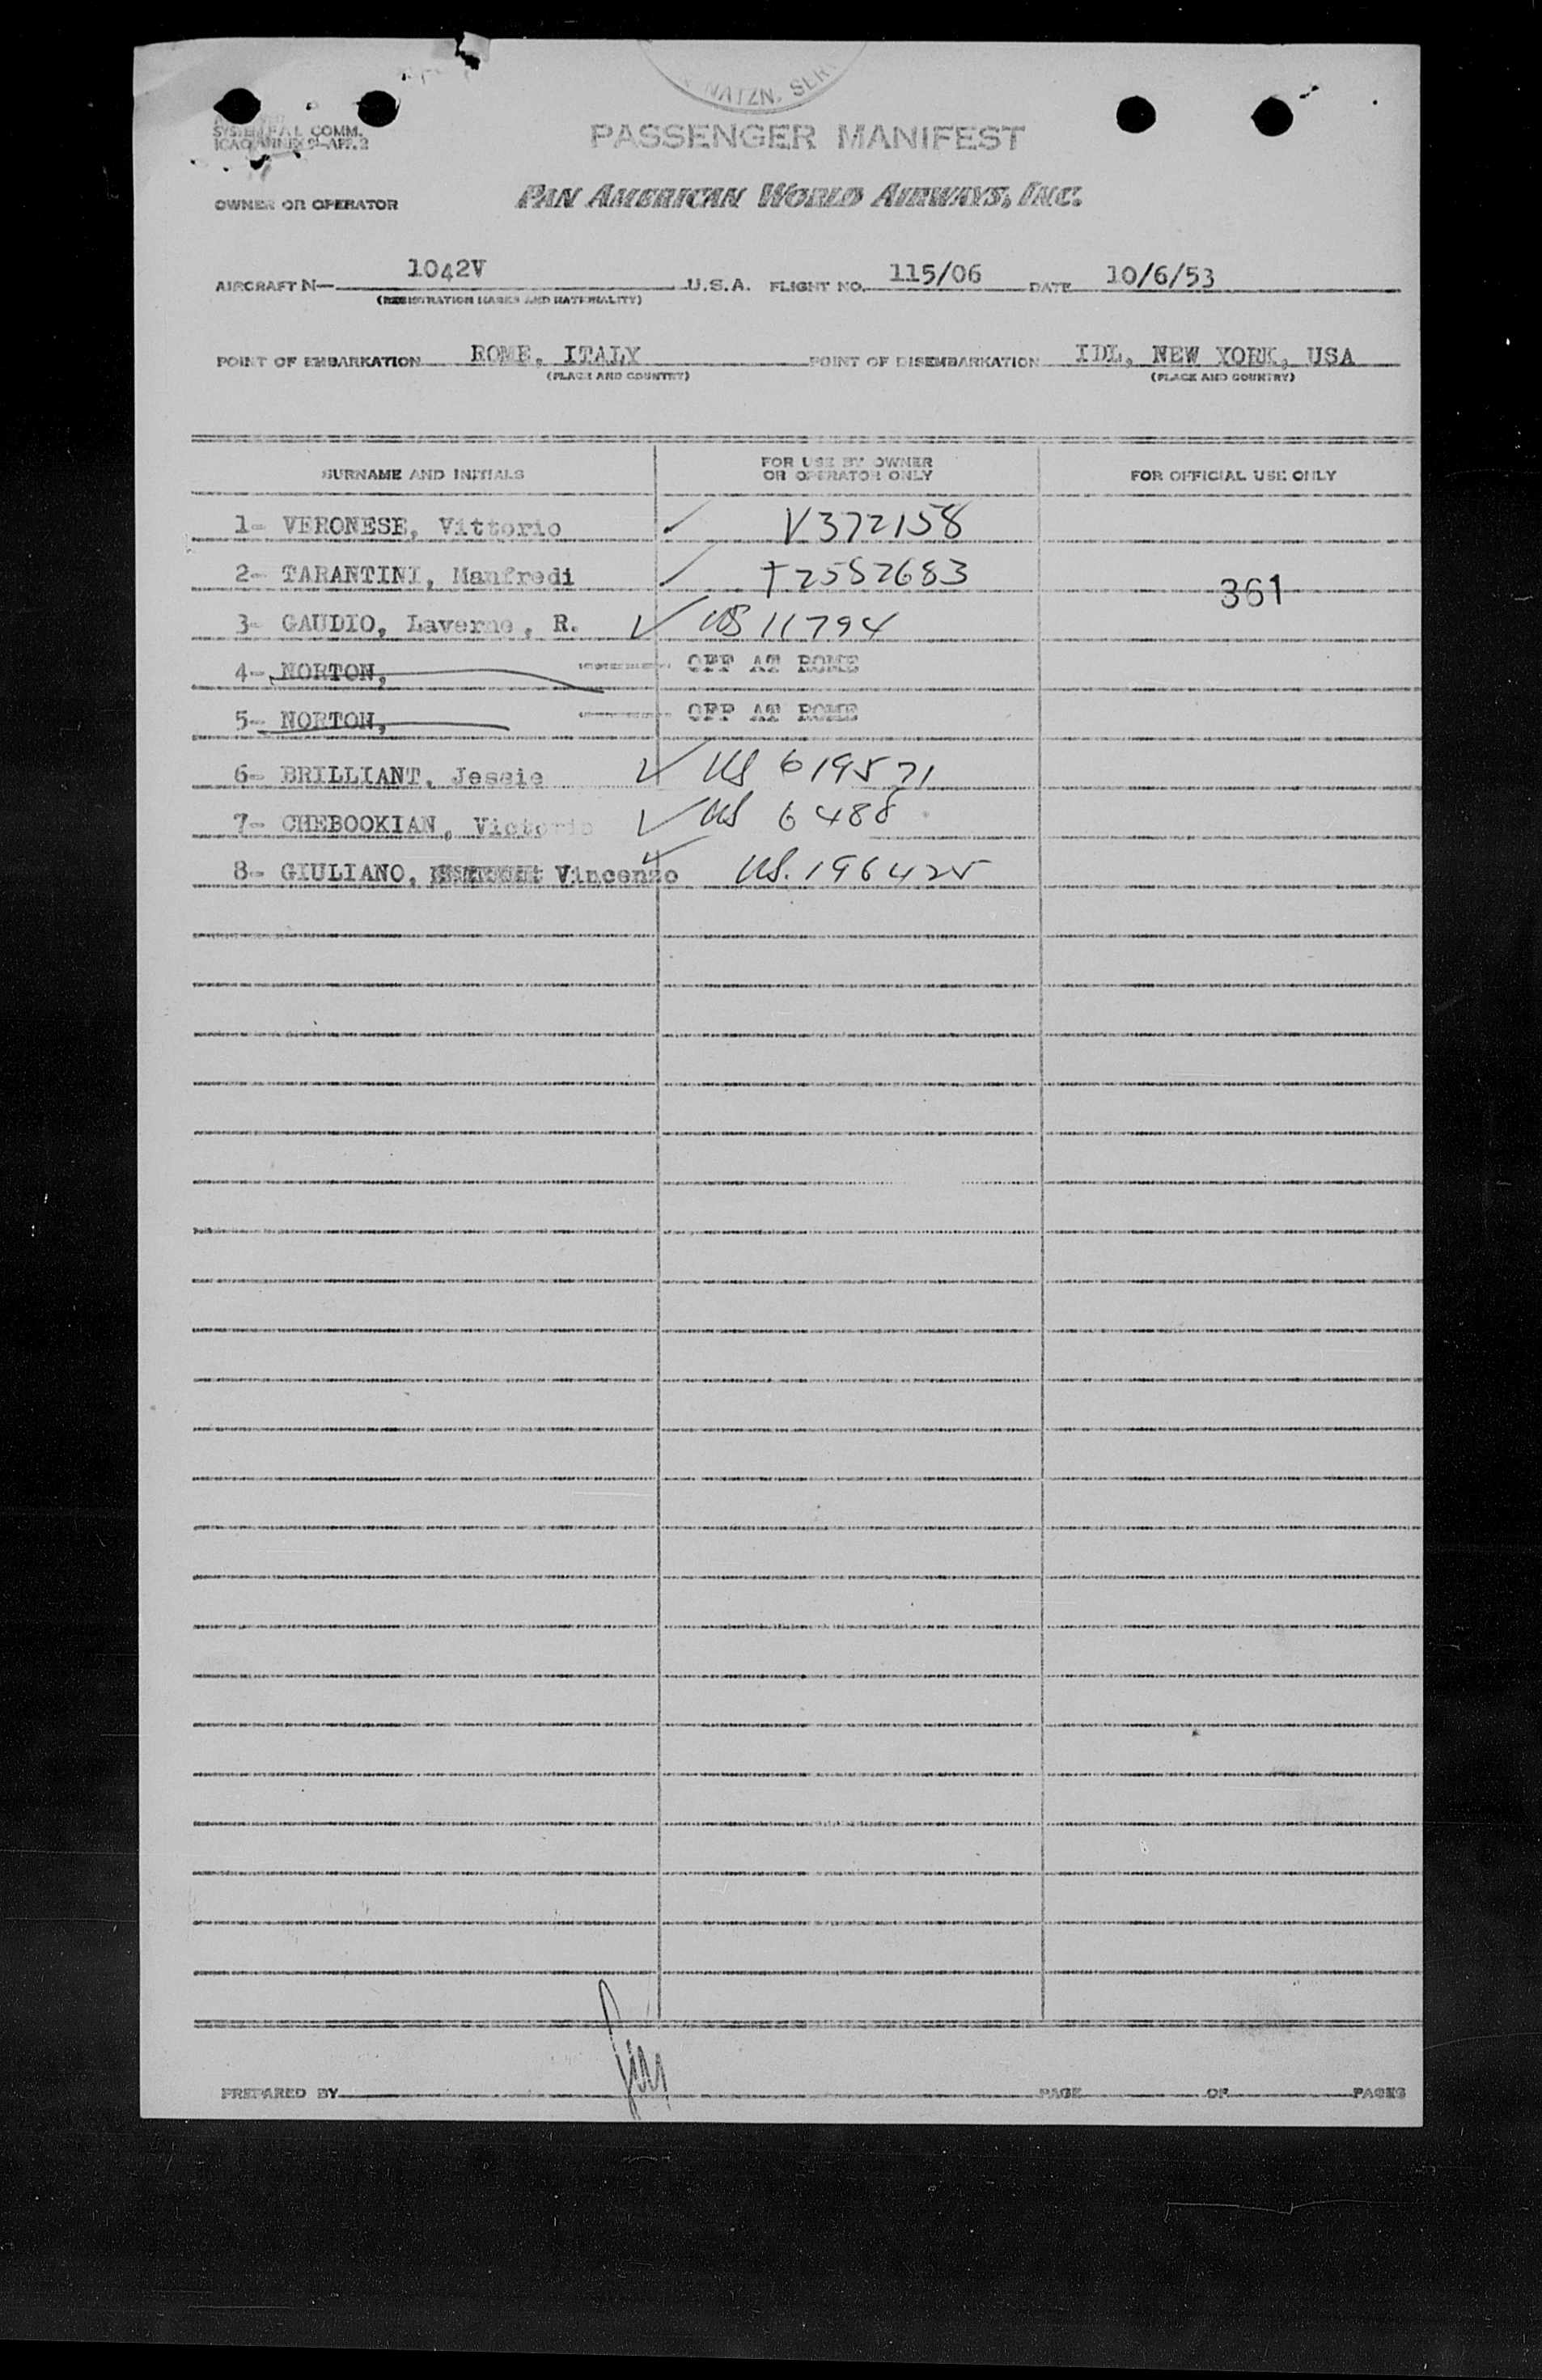 NATZN. SER
COMM.
ICAO ANNEX 9-APP.2
PASSENGER MANIFEST
OWNER OR OPERATOR PAN AMERICAN WORLD AIRWAYS, INC.
AIRCRAFT N- 1042V U.S.A. FLIGHT NO. 115/06 DATE 10/6/53
(REGISTRATION MARKS AND NATIONALITY)
POINT OF EMBARKATION ROME, ITALY POINT OF DISEMBARKATION IDL, NEW YORK, USA
(PLACE AND COUNTRY) (PLACE AND COUNTRY)
SURNAME AND INITIALS FOR USE BY OWNER OR OPERATOR ONLY FOR OFFICIAL USE ONLY
1- VERONESE, Vittorio ✓ V372158
2- TARANTINI, Manfredi ✓ T2582683 361
3- GAUDIO, Laverne, R. ✓ US 11794
4- NORTON, OFF AT ROME
5- NORTON, OFF AT ROME
6- BRILLIANT, Jessie ✓ US 619571
7- CHEBOOKIAN, Victoria ✓ US 6488
8- GIULIANO, Vincenzo ✓ US. 196425
PREPARED BY PAGE OF PAGES